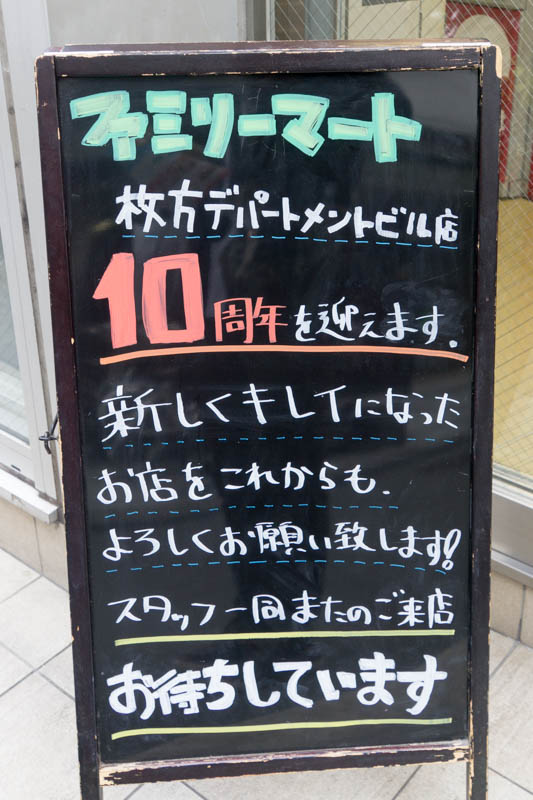 ファミリーマート
枚方デパートメントビル店
10周年を迎えます.
新しくキレイになった
お店をこれからも.
よろしくお願い致します!
スタッフ一同またのご来店
お待ちしています